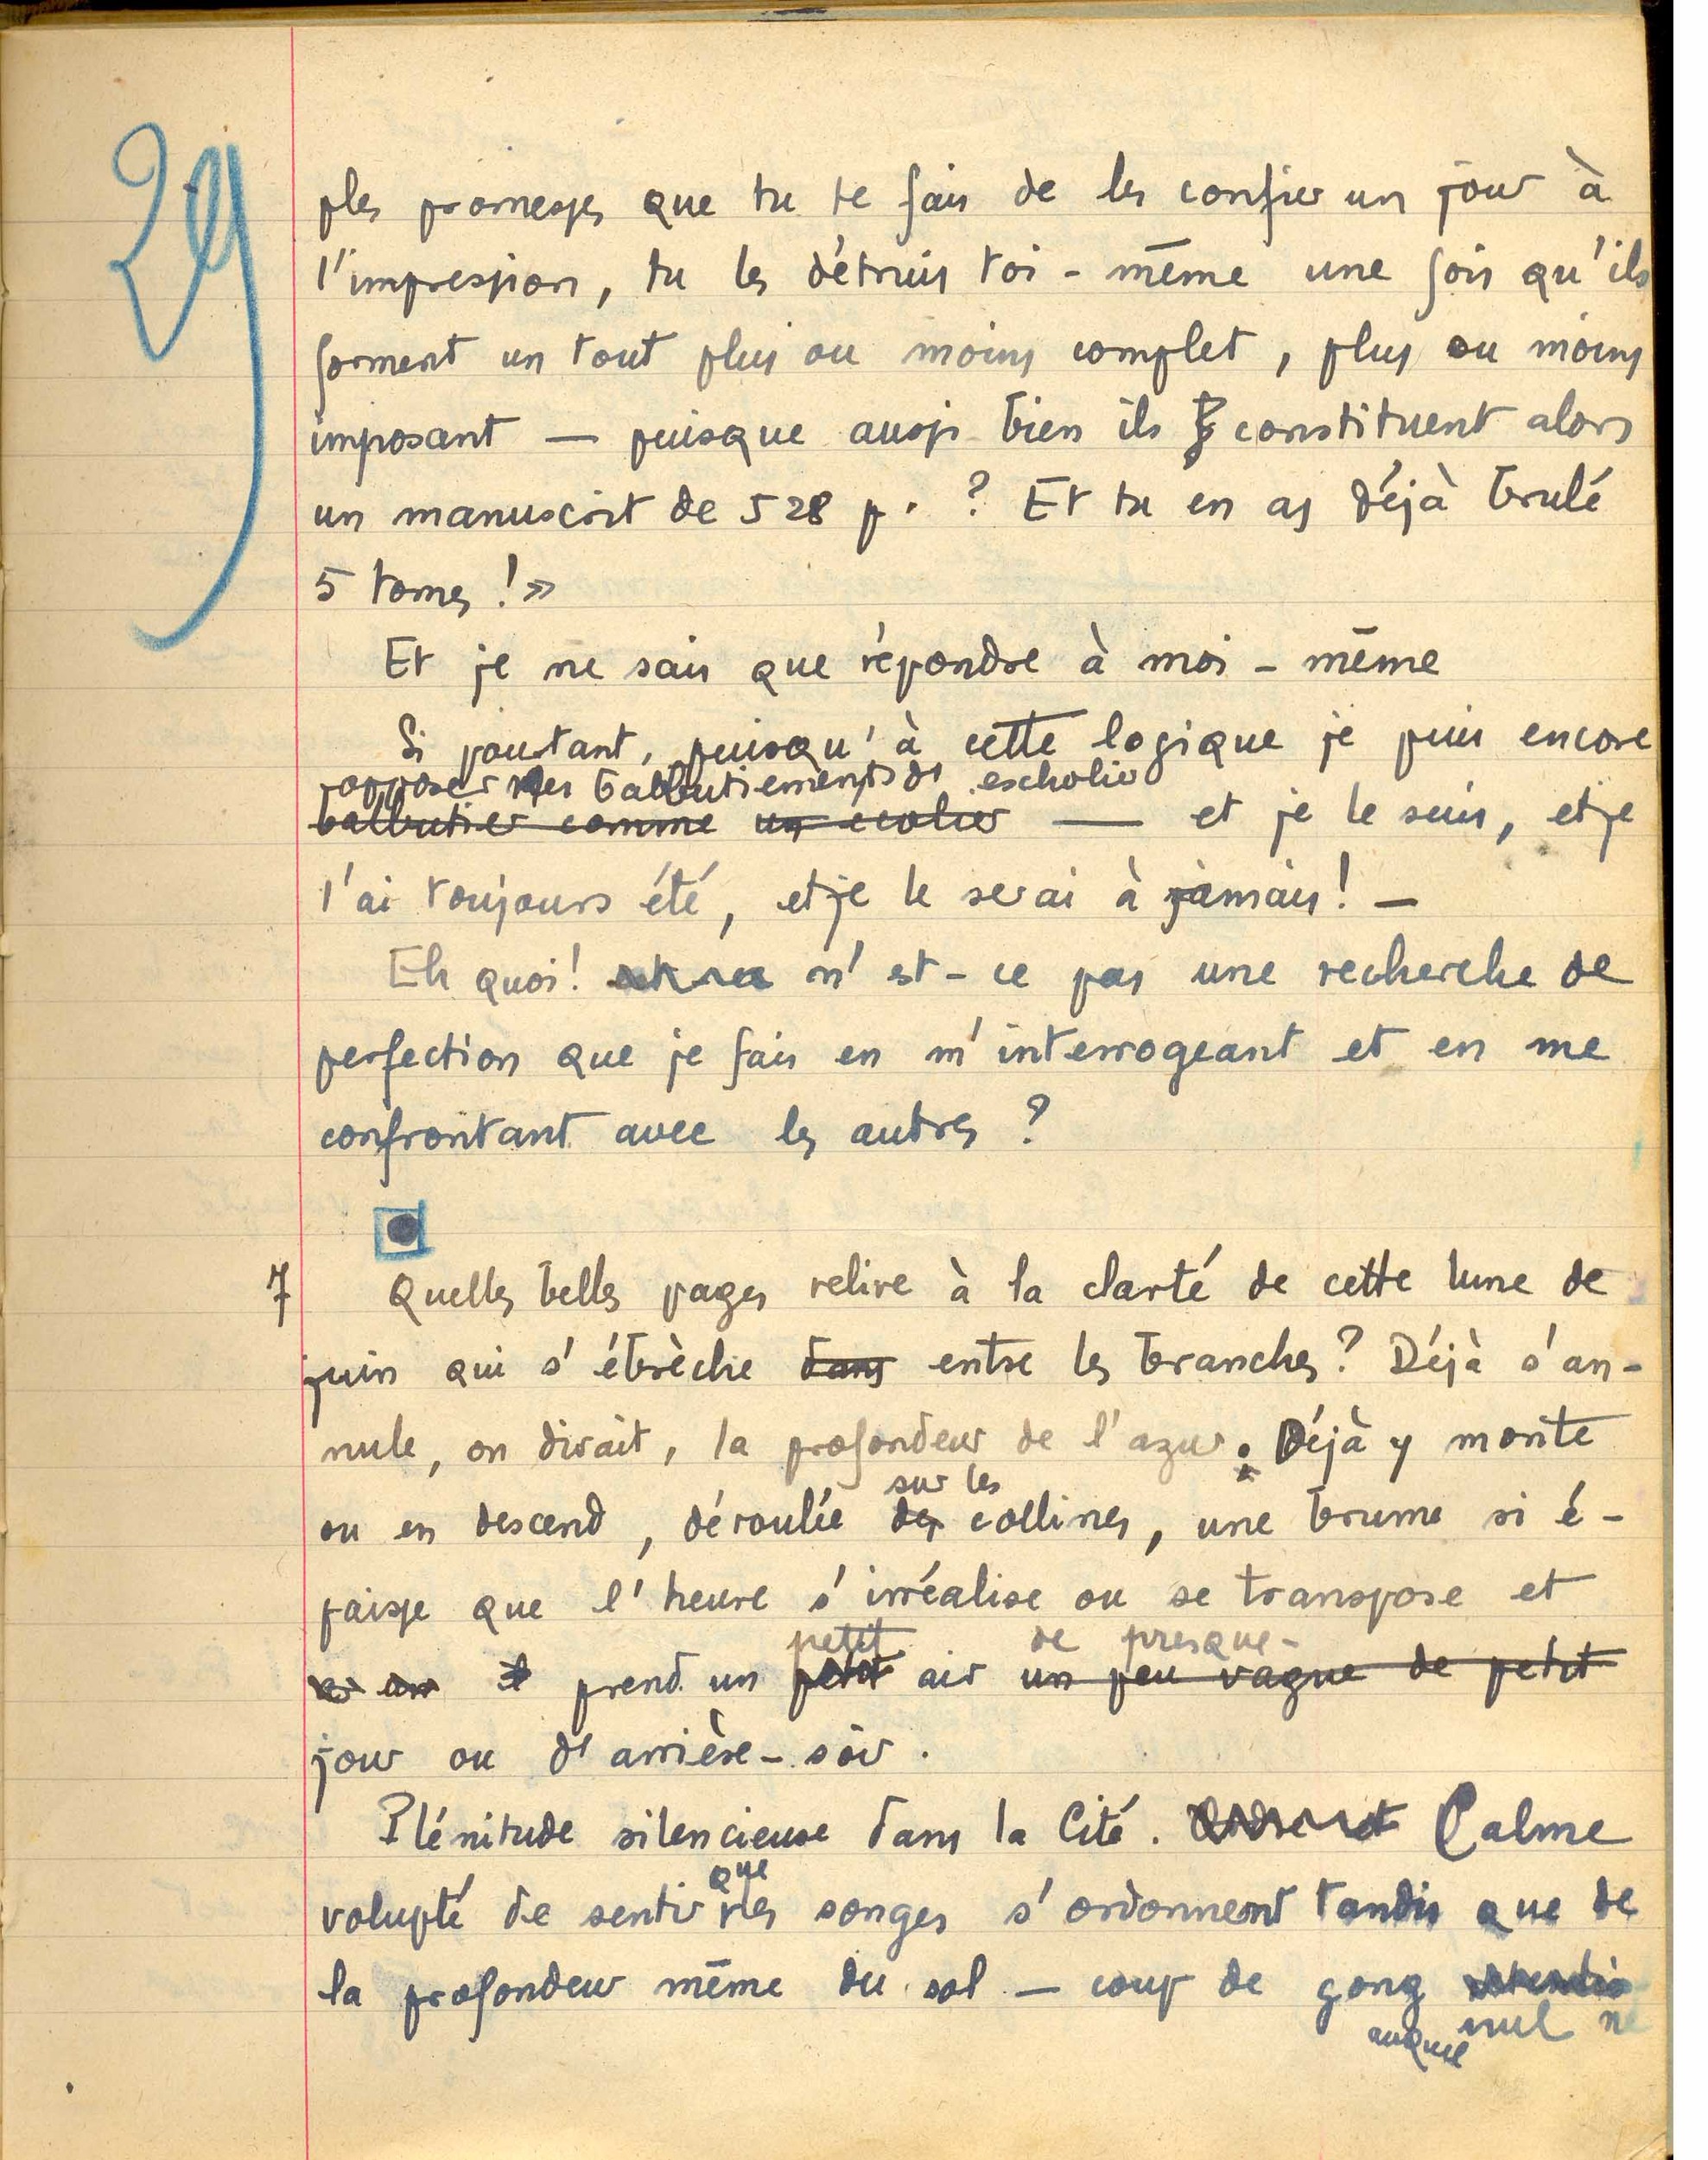 29
ples promesses que tu te fais de les confier un jour à
l'impression, tu les détruis toi-même une fois qu'ils
forment un tout plus ou moins complet, plus ou moins
imposant — puisque aussi bien ils constituent alors
un manuscrit de 528 p. ? Et tu en as déjà brulé
5 tomes ! »
Et je ne sais que répondre à moi-même
Si pourtant, puisqu'à cette logique je puis encore
opposer des balbutiements d'escholier
balbutier comme un ecolier — et je le suis, et je
l'ai toujours été, et je le serai à jamais ! —
Eh quoi ! n'est-ce pas une recherche de
perfection que je fais en m'interrogeant et en me
confrontant avec les autres ?
7 Quelles belles pages relire à la clarté de cette lune de
juin qui s'ébrèche dans entre les branches ? Déjà s'an-
nule, on dirait, la profondeur de l'azur. Déjà y monte
sur les
ou en descend, déroulée des collines, une brume si é-
paisse que l'heure s'irréalise ou se transpose et
petit de presque-
prend un petit air un peu vague de petit
jour ou d'arrière-soir.
Plénitude silencieuse dans la Cité. Calme
que
volupté de sentir les songes s'ordonnent tandis que de
la profondeur même du sol — coup de gong
auquel nul ne